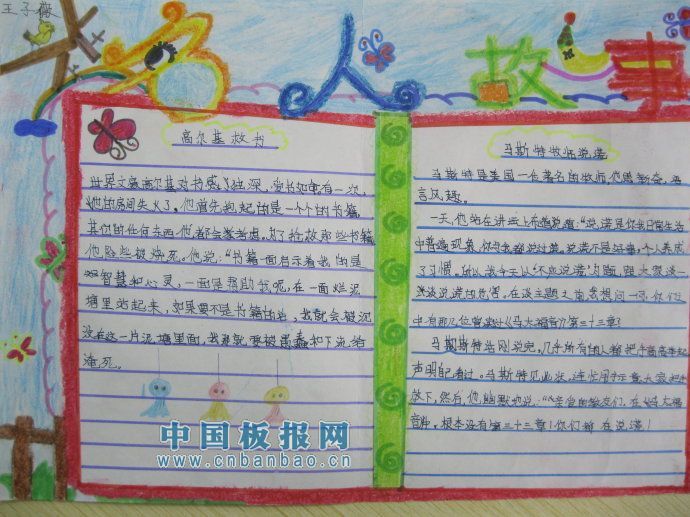 王子薇
名人故事
高尔基救书
世界文豪高尔基对书感情独深,爱书如命有一次,
他的房间失火了。他首先抱起的是一个个的书籍,
其他的任何东西他都会考虑。为了抢救那些书籍
他险些被烧死。他说:"书籍一面启示着我的是
智慧和心灵,一面是帮助我呢,在一面烂泥
塘里站起来,如果要不是书籍的话,我就会被沉
没在这一片泥塘里面,我那就要被愚蠢和下流给
淹死。
马斯特牧师说谎
马斯特是美国一名著名的牧师,思新奇,语
言风趣。
一天,他站在讲坛上布道说道:"说谎是你我日常生活
中普遍现象,你我都说过谎。说谎不是好事,个人养成
了习惯。所以我今天以"不应说谎"为题,跟大家谈一
谈说谎的危害。在谈主题之前,我想问一,你们
中有那几位曾读《马太福音》第三十三章?
马斯特话刚说完,几乎所有的人都把手高高举起
声明配看过。马斯特见此,连忙用手示意大家把手
放下,然后,他幽默地说:"亲爱的教友们,在马太福
音中,根本没有第三十三章!你们都在说谎!
中国板报网
www.cnbanbao.cn